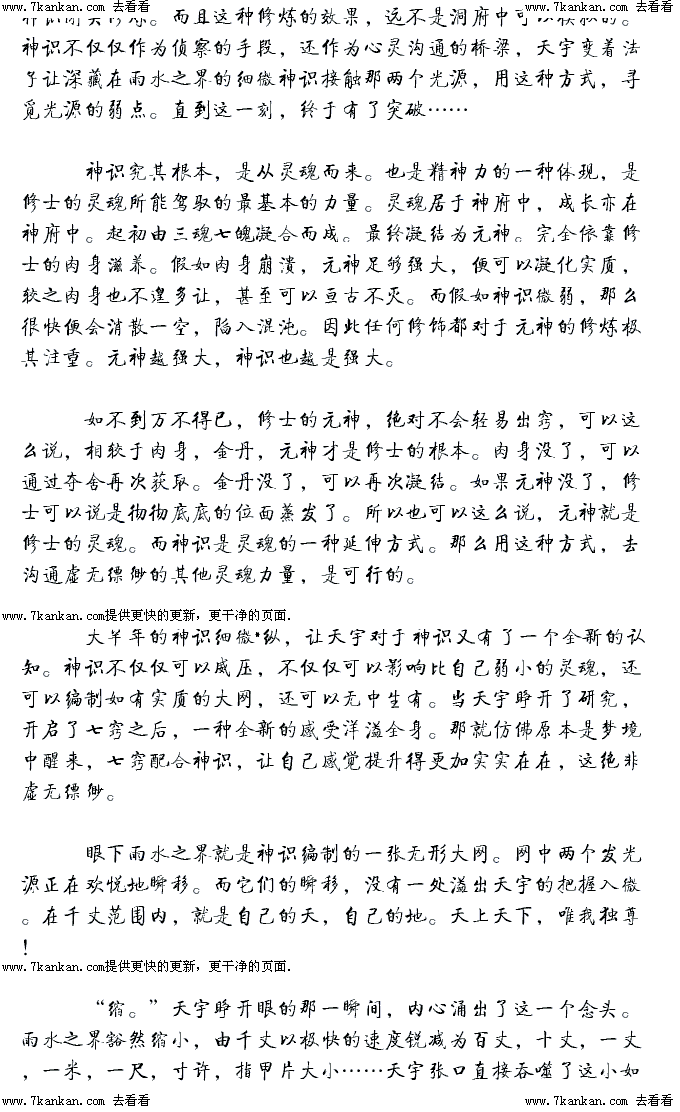 www.7kankan.com 去看看 www.7kankan.com 去看看
而且这种修炼的效果，远不是洞府中可以模拟的。
神识不仅仅作为侦察的手段，还作为心灵沟通的桥梁，天宇变着法
子让深藏在雨水之界的细微神识接触那两个光源，用这种方式，寻
觅光源的弱点。直到这一刻，终于有了突破……
神识究其根本，是从灵魂而来。也是精神力的一种体现，是
修士的灵魂所能驾驭的最基本的力量。灵魂居于神府中，成长亦在
神府中。起初由三魂七魄凝合而成。最终凝结为元神。完全依靠修
士的肉身滋养。假如肉身崩溃，元神足够强大，便可以凝化实质，
较之肉身也不遑多让，甚至可以亘古不灭。而假如神识微弱，那么
很快便会消散一空，陷入混沌。因此任何修饰都对于元神的修炼极
其注重。元神越强大，神识也越是强大。
如不到万不得已，修士的元神，绝对不会轻易出窍，可以这
么说，相较于肉身，金丹，元神才是修士的根本。肉身没了，可以
通过夺舍再次获取。金丹没了，可以再次凝结。如果元神没了，修
士可以说是彻彻底底的位面蒸发了。所以也可以这么说，元神就是
修士的灵魂。而神识是灵魂的一种延伸方式。那么用这种方式，去
沟通虚无缥缈的其他灵魂力量，是可行的。
www.7kankan.com提供更快的更新，更干净的页面.
大半年的神识细微*纵，让天宇对于神识又有了一个全新的认
知。神识不仅仅可以威压，不仅仅可以影响比自己弱小的灵魂，还
可以编制如有实质的大网，还可以无中生有。当天宇睁开了研究，
开启了七窍之后，一种全新的感受洋溢全身。那就仿佛原本是梦境
中醒来，七窍配合神识，让自己感觉提升得更加实实在在，这绝非
虚无缥缈。
眼下雨水之界就是神识编制的一张无形大网。网中两个发光
源正在欢悦地瞬移。而它们的瞬移，没有一处溢出天宇的把握入微
。在千丈范围内，就是自己的天，自己的地。天上天下，唯我独尊
！
www.7kankan.com提供更快的更新，更干净的页面.
“缩。”天宇睁开眼的那一瞬间，内心涌出了这一个念头。
雨水之界豁然缩小，由千丈以极快的速度锐减为百丈，十丈，一丈
，一米，一尺，寸许，指甲片大小……天宇张口直接吞噬了这小如
www.7kankan.com 去看看 www.7kankan.com 去看看